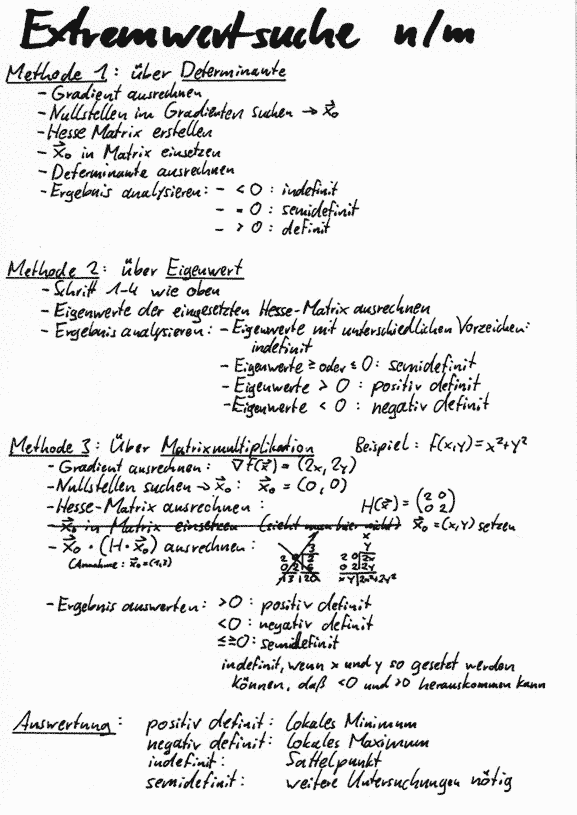 Extremwertsuche n/m
Methode 1: über Determinante
- Gradient ausrechnen
- Nullstellen im Gradienten suchen → x⃗₀
- Hesse Matrix erstellen
- x⃗₀ in Matrix einsetzen
- Determinante ausrechnen
- Ergebnis analysieren: - < 0 : indefinit
- = 0 : semidefinit
- > 0 : definit
Methode 2: über Eigenwert
- Schritt 1-4 wie oben
- Eigenwerte der eingesetzten Hesse-Matrix ausrechnen
- Ergebnis analysieren: - Eigenwerte mit unterschiedlichen Vorzeichen:
indefinit
- Eigenwerte ≥ oder ≤ 0: semidefinit
- Eigenwerte > 0 : positiv definit
- Eigenwerte < 0 : negativ definit
Methode 3: über Matrixmultiplikation Beispiel: f(x,y)=x²+y²
- Gradient ausrechnen: ∇f(x⃗) = (2x, 2y)
- Nullstellen suchen → x⃗₀: x⃗₀ = (0,0)
- Hesse-Matrix ausrechnen: H(x⃗) = (2 0
0 2)
- x⃗₀ in Matrix einsetzen (sieht man hier nicht) x⃗₀=(x,y) setzen
- x⃗₀ · (H · x⃗₀) ausrechnen:
x
y
2 0 2x
0 2 2y
x y 2x²+2y²
- Ergebnis auswerten: >0: positiv definit
<0: negativ definit
≤≥0: semidefinit
indefinit, wenn x und y so gesetzt werden
können, daß <0 und >0 herauskommen kann
Auswertung: positiv definit: lokales Minimum
negativ definit: lokales Maximum
indefinit: Sattelpunkt
semidefinit: weitere Untersuchungen nötig